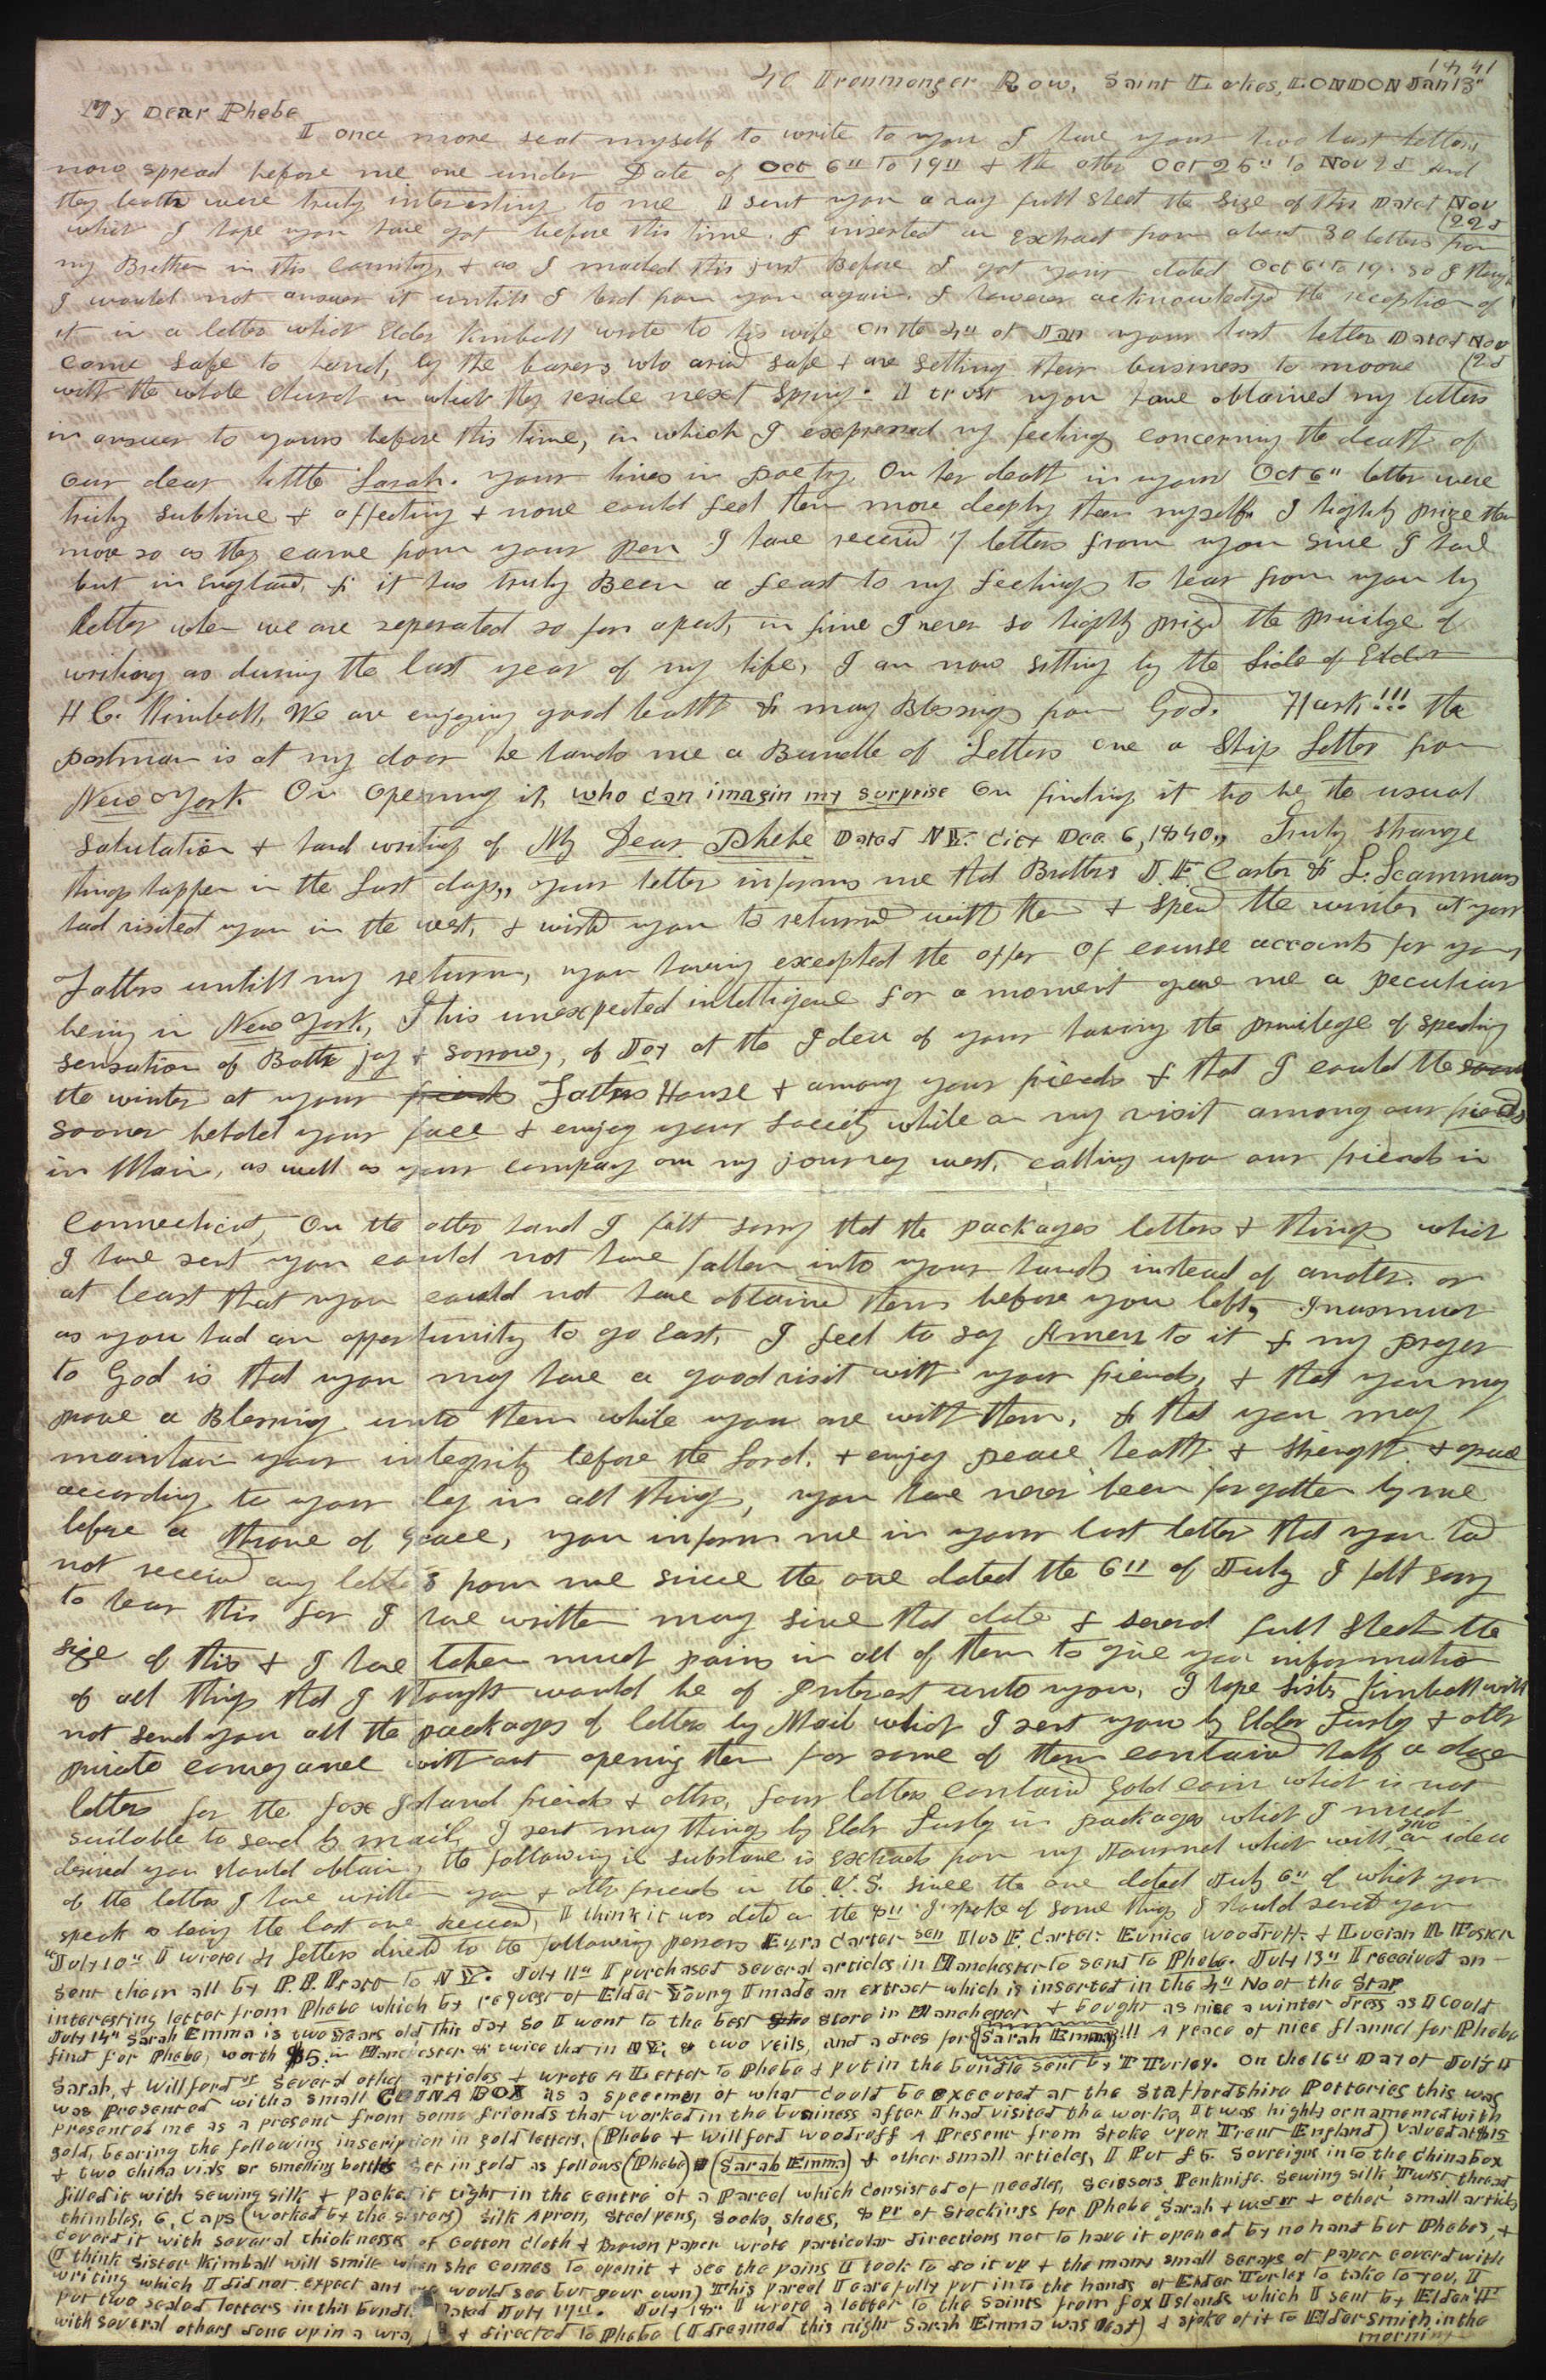 1841
40 Ironmonger Row, Saint Lukes, LONDON Jan 13"
My Dear Phebe
I once more seat myself to write to you I have your two last letters
now spread before me one under Date of Oct 6" to 19" & the other Oct 25" to Nov 2d and
they both were truly interesting to me I sent you a full sheet the size of this Dated Nov
(22d
which I hope you have got before this time. I inserted an extract from about 30 letters from
my Brethren in this country, & as I mailed this just Before I got yours dated Oct 6" to 19. so I
I would not answer it untill I herd from you again. I however acknowledged the reception of
it in a letter which Elder Kimball wrote to his wife on the 4" of Jan your last letter Dated Nov
(2d
come safe to hand, by the bearers who arivd safe & are setling their business to moove
with the whole church in which they reside next Spring. I trust you have obtained my letters
in answer to yours before this time, in which I expressed my feelings concerning the death of
our dear little Sarah. your lines in poetry On her death in your Oct 6" letter were
truly sublime & affecting & none could feel them more deeply than myself I highly prize them
more so as they came from your pen I have received 7 letters from you since I have
but in England, & it has truly Been a feast to my feelings to hear from you by
letter when we are seperated so far apart, in fine I never so highly prized the privilege of
writing as during the last year of my life, I am now sitting by the side of Elder
H C. Kimball, We are enjoying good health & many Blessings from God. Hark!!! the
postman is at my door he hands me a Bundle of Letters one a Ship Letter from
New York. On opening it, who can imagin my surprise on finding it to be the usual
salutation & hand writing of My Dear Phebe Dated N Y. City Dec. 6, 1840,, Truly strange
things happen in the last days,, your letter informs me that Brothers I. F. Carter & L. Scammans
had visited you in the west, & wishd you to returnd with them & spend the winter at your
Fathers untill my return, you having excepted the offer of course accounts for your
being in New York, This unexpected intelligence for a moment gave me a peculiar
sensation of Both joy & sorrow,, of Joy at the Idea of your having the privilege of spending
the winter at your friends Fathers House & among your friends & that I could the soon
sooner behold your face & enjoy your society while on my visit among our friends
in Main, as well as your company on my journey west, calling upon our friends in
Connecticut, On the other hand I felt sorry that the packages letters & things which
I have sent you could not have fallen into your hands instead of another. or
at least that you could not have obtained them before you left, Inasmuch
as you had an oppertunity to go East, I feel to say Amen to it & my prayer
to God is that you may have a good visit with your friends, & that you may
prove a Blessing unto them while you are with them, & that you may
maintain your integrity before the Lord, & enjoy peace health & strength & grace
according to your day in all things, you have never been forgotten by me
before a throne of Grace, you inform me in your last letter that you had
not receivd any letters from me since the one dated the 6" of July I felt sorry
to hear this for I have written many since that date & several full sheets the
size of this & I have taken much pains in all of them to give you information
of all things that I thought would be of Interest unto you, I hope Sister Kimball will
not send you all the packages of letters by Mail which I sent you by Elder Turley & other
private conveyance without opening them for some of them containd half a dozen
letters for the Fox Island friends & others, four letters containd gold coin which is not
suitable to send by mail, I sent many things by Elder Turley in packages which I much
desired you should obtain, the following in substance is extracts from my Journal which will give an idea
of the letters I have written you & other friends in the U. S. since the one dated July 6" of which you
speak as being the last one receivd, I think it was dated on the 8" I spoke of some things I should send you
"July 10" I wrote 4 letters directed to the following persons Ezra Carter sen Ilus F. Carter Eunice Woodruff. & Lucian R Foster
sent them all by P. P. Pratt to N Y. July 11" I purchased several articles in Manchester to send to Phebe. July 13" I received an
interesting letter from Phebe which by request of Elder Young I made an extract which is inserted in the 4" No of the Star
July 14" Sarah Emma is two years old this day so I went to the best sto store in Manchester & bought as nice a winter dress as I could
find for Phebe, worth $5. in Manchester & twice that in NY. & two veils, and a dres for Sarah Emma!!! A peace of nice flannel for Phebe
Sarah, & Willford & several other articles & wrote A Letter to Phebe & put in the bundle sent by T Turley. On the 16" Day of July I
was Presented with a small CHINA BOX as a specemen of what could be executed at the Staffordshire Potteries this was
presented me as a present from some friends that worked in the business after I had visited the works, It was highly ornamented with
gold, bearing the following inscription in gold letters, (Phebe & Willford Woodruff A Present from Stoke upon Trent England) valued at $15
& two china vials or smelling bottles set in gold as follows (Phebe) & (Sarah Emma) & other small articles, I Put £5. Sovreigns into the China box
filled it with sewing silk & packed it tight in the centre of a Parcel which consisted of needles, Scissors, Penknife. Sewing silk, Twist thread
thimbles, 6, Caps (worked by the sisters) silk Apron, Steel pens, Socks, shoes, 8 pr of Stockings for Phebe Sarah & & other small articles
coverd it with several thicknesses of cotton cloth & Brown Paper wrote particular directions not to have it opened by no hand but Phebe's, &
(I think Sister Kimball will smile when she comes to open it & see the pains I took to do it up & the many small scraps of paper coverd with
writing which I did not expect any eye would see but your own) This parcel I carefully put into the hands of Elder Turley to take to you, I
put two sealed letters in this bundle Dated July 17". July 18" I wrote a letter to the Saints from Fox Islands which I sent by Elder T
with several others done up in a & directed to Phebe (I dreamed this night Sarah Emma was Dead) & spoke of it to Elder Smith in the
morning